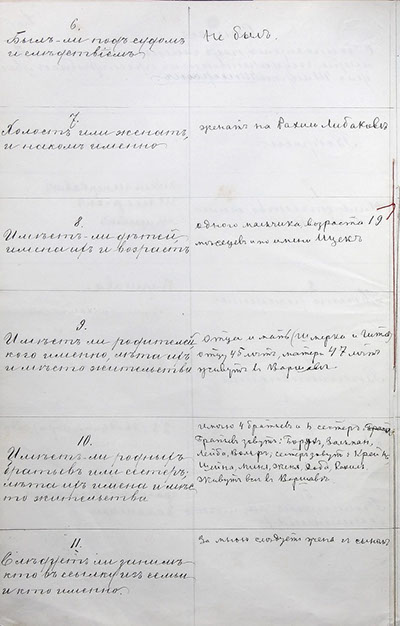 6.
Былъ-ли подъ судомъ
и слѣдствіемъ
Не былъ.
7.
Холостъ или женатъ,
и на комъ именно
женатъ на Рахиль Либаковъ
8.
Имѣетъ-ли дѣтей
имена ихъ и возрастъ
одного мальчика, возраста 19
мѣсяцевъ и по имени Ицекъ
9.
Имѣетъ ли родителей
кого именно, лѣта ихъ
и мѣсто жительства
Отца и мать (Шмерка и Гита)
отцу 45 лѣтъ, матери 47 лѣтъ
живутъ въ Варшавѣ
10.
Имѣетъ ли родныхъ
братьевъ или сестеръ,
лѣта ихъ имена и мѣс
то жительства
имѣю 4 братьевъ и 4 сестеръ.
Братьевъ зовутъ: Борухъ,
Лейба, сестеръ зовутъ:
Шейна,
Живутъ всѣ въ Варшавѣ
11.
Слѣдуетъ ли за нимъ
кто въ ссылку изъ семьи
и кто именно.
За мною слѣдуетъ жена и сынъ